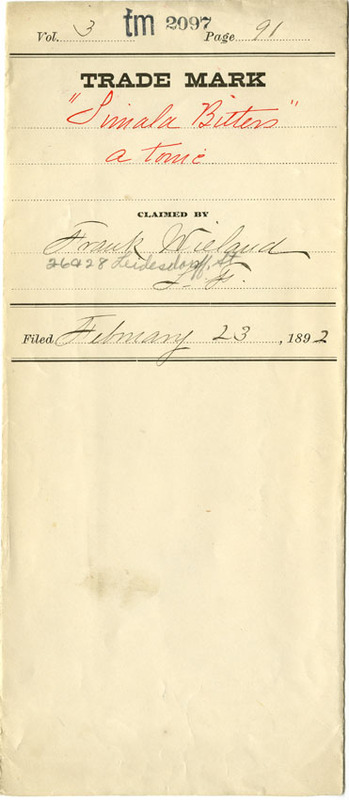 Vol. 3 tm 2097 Page 91
TRADE MARK
"Simala Bitters"
a tonic
CLAIMED BY
Frank Wieland
26 & 28 Leidesdorff St
S. F.
Filed February 23, 1892